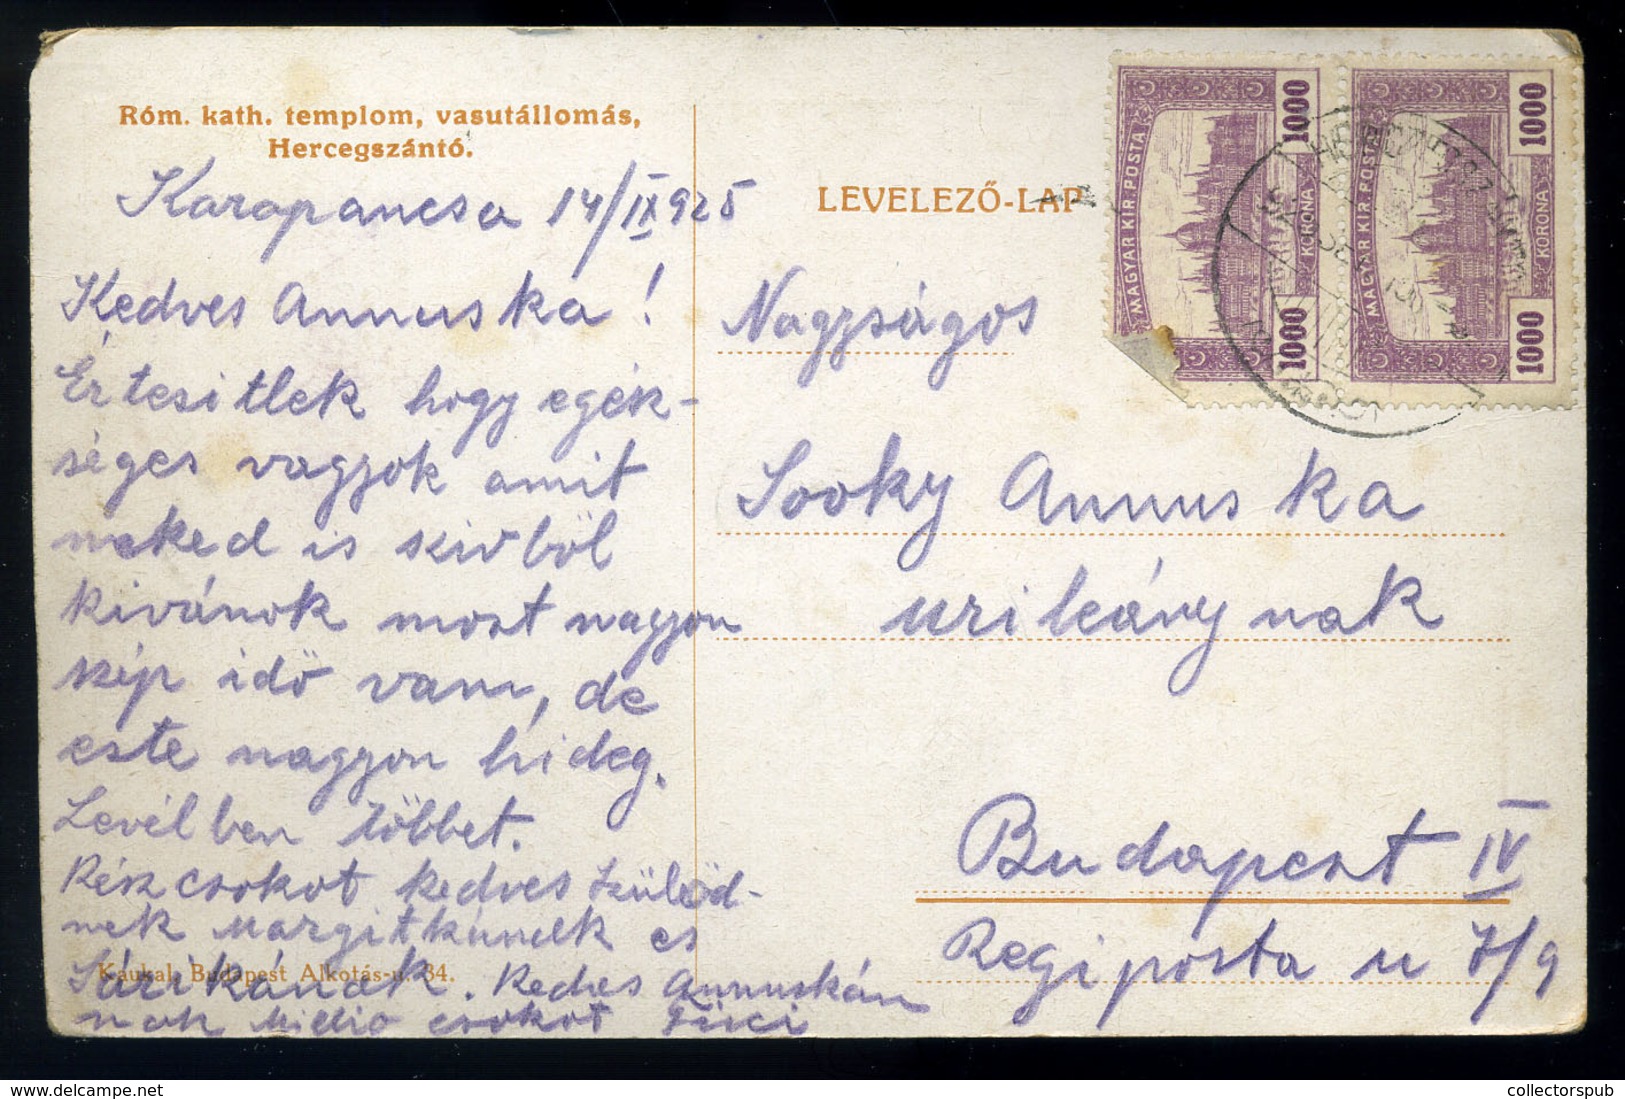 Róm. kath. templom, vasutállomás,
Hercegszántó.
Karapancsa 14/IX 925
Kedves Annuska!
Értesitlek hogy egék-
séges vagyok amit
neked is szivböl
kivánok most nagyon
szép idö van, de
este nagyon hideg.
Levélben többet.
Kézcsokot kedves Szüleid-
nek Margitkának és
Sárikának. Kedves Annuskán
nak Millió csokot Feri
Kaukal, Budapest Alkotás-u. 34.
LEVELEZŐ-LAP
1000
MAGYAR KIR. POSTA
KORONA
1000
1000
MAGYAR KIR. POSTA
KORONA
1000
Nagyságos
Sooky Annuska
urileánynak
Budapest IV
Regiposta u 7/9
collectorspub